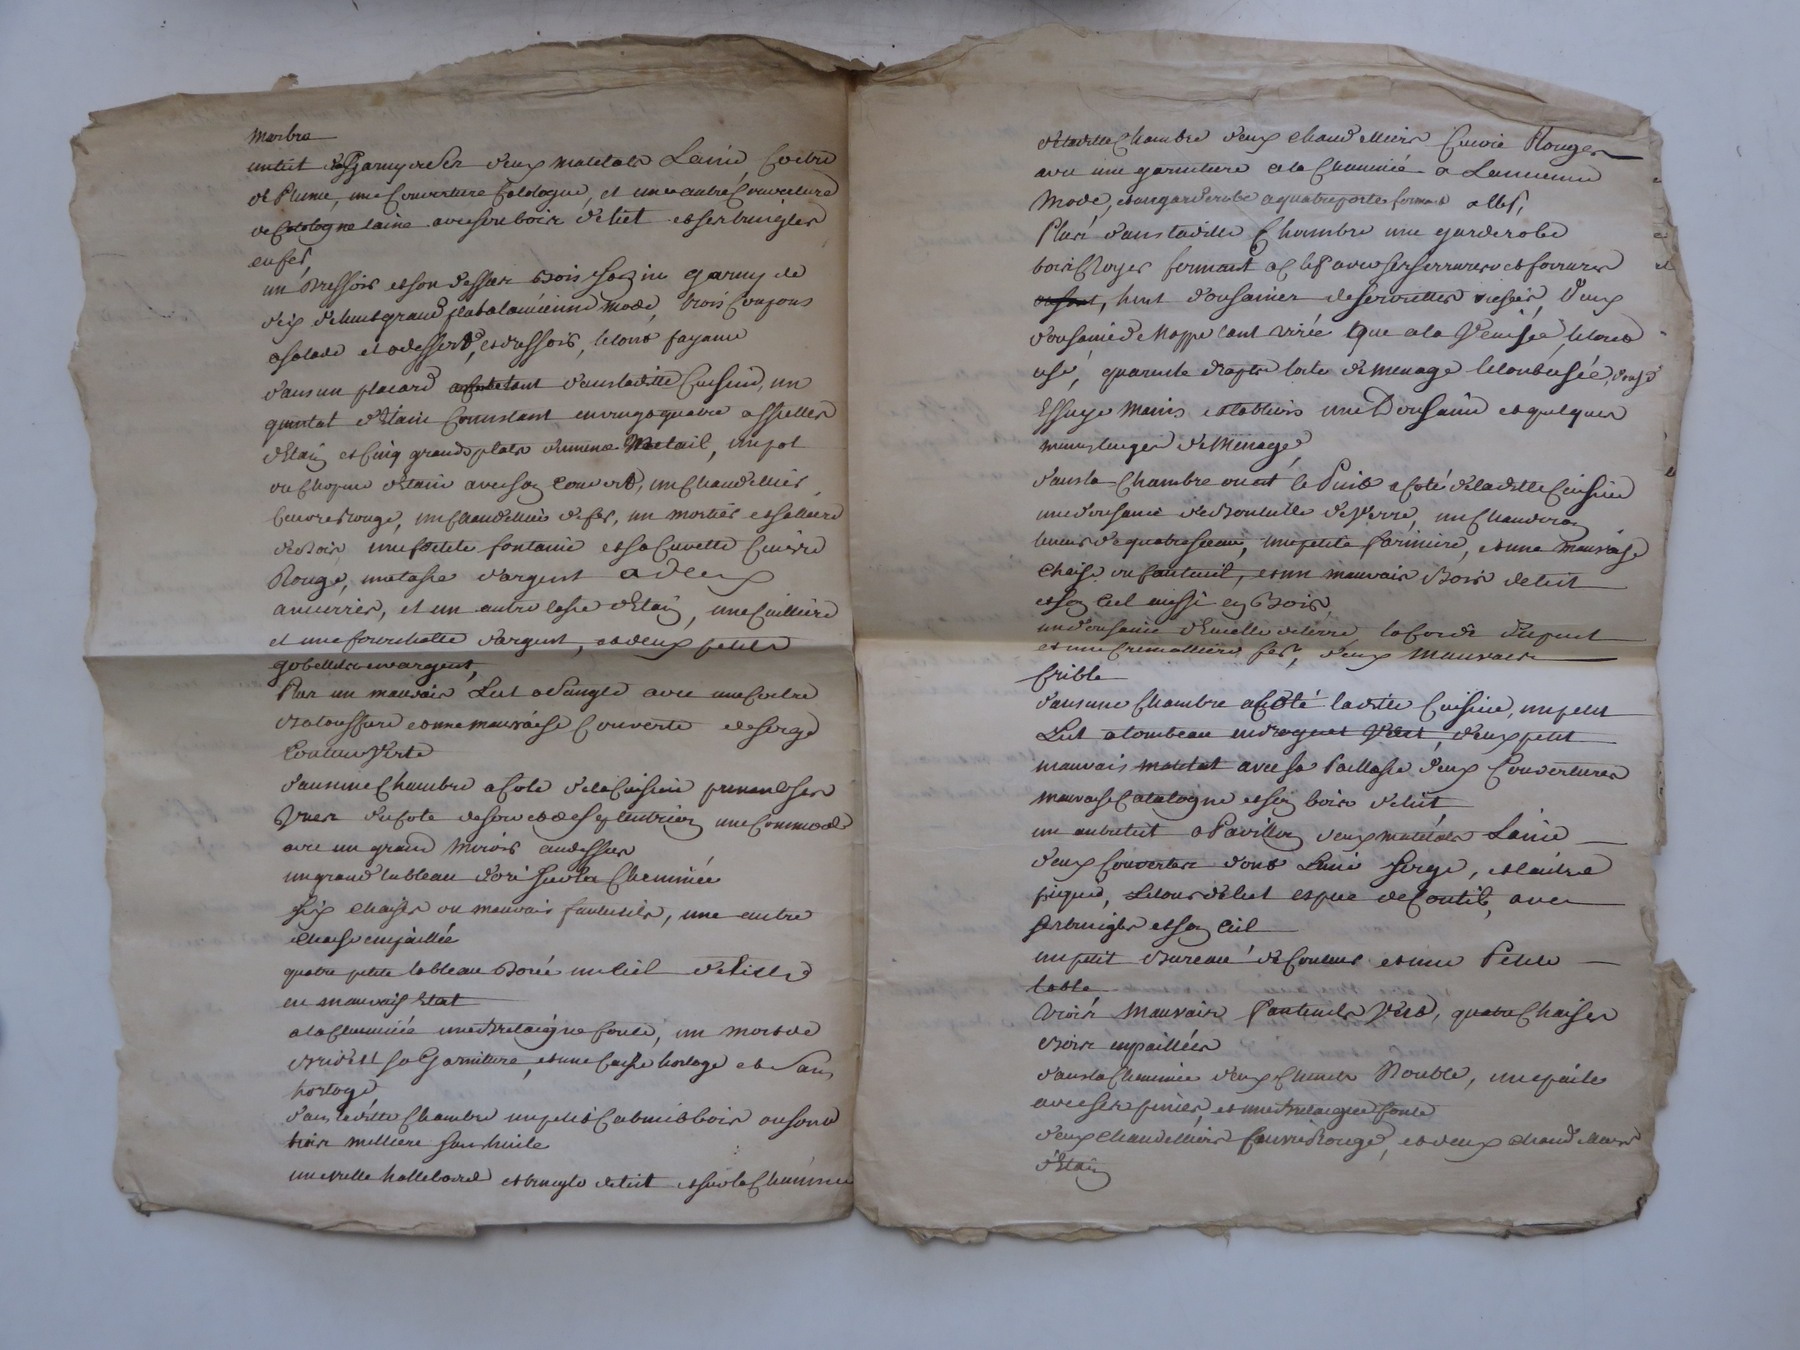 marbre
un Lit Garny de Ses deux matelats Laine, Coëtre
de Plume, une Couverture Catalogne, et une autre Couverture
de Catalogne laine avec son bois de lit et ses tringles
en fer,
un Dressoir et son dessus Bois Sapin garny de
dix de huit grand plat a lancienne mode, trois Coupons
a salade et a dessert, et dressoir, le tout fayance
dans un placard dans ladite Cuisine, un
quintal d'Etain Consistant en vingt quatre assiettes
d'Etain et Cinq grands plats de meme Metail, un pot
ou Chopine d'Etain avec son Couvert, un Chandellier
Cuivre Rouge, un Chandellier de fer, un mortier et saliere
de Bois, une petite fontaine et sa Cuvette Cuivre
Rouge, une tasse d'argent a deux
et un autre tasse d'Etain, une Cuilliere
et une fourchette d'argent, et deux petits
gobellets en argent,
Plus un mauvais Lit a Sangle avec une Coëtre
et une mauvaise Couverte de Serge
Couleur Verte
dans une Chambre a Coté de la Cuisine prenant ses
Vues du Coté une Commode
avec un grand Miroir au dessus
un grand tableau doré sur la Cheminée
Six Chaises ou mauvais fauteuils, une autre
Chaise empaillée
quatre petits tableau Doré un Ciel de Lit
en mauvais Etat
a la Cheminée une Bretaigne fonte, un mors de
Bride et sa Garniture, et une Caisse horloge et Sans
horloge
dans ladite Chambre un petit Cabinet bois ou sont
trois sans huile
une vielle hallebard et tringle de lit et sur la Cheminée
de ladite Chambre deux Chandelliers Cuivre Rouges
avec une garniture a la Cheminée a Lancienne
Mode, et un garderobe a quatre porte fermant a Clef,
Plus dans ladite Chambre une garderobe
bois Noyer fermant a Clef avec ses serrures et ferrures
, huit dousaines de serviettes , deux
dousaine de Nappe tant que a la Venise, le tout
usé, quarente draps toile de menage le tout usée, douze
Essuye mains et tabliers une Dousaine et quelques
menus linges de Menage,
dans la Chambre ou est le Puits a Coté de ladite Cuisine
une dousaine de Bouteille de Verre, un Chaudron
de quatre seau, une petite farinière, et une mauvaise
Chaise ou fauteuil, et un mauvais Bois de lit
et son Ciel aussi en Bois,
une dousaine d'Ecuelle de terre, la Corde du puit
et une Cremalliere fer, deux Mauvais
Crible
dans une Chambre a Coté ladite Cuisine, un petit
Lit a tombeau en droguet Vert, deux petit
mauvais matelat avec sa Paillasse deux Couvertures
mauvaise Catalogne et son bois de lit
un autre Lit a Pavillon deux matelats Laine
deux Couvertes dont Lune Serge, et lautre
piquée, Le tour de lit est de Coutil, avec
ses tringles et son Ciel
un petit Bureau de Couleur et une Petite
table
trois Mauvais fauteuils Vert, quatre Chaises
Bois empaillées
dans la Cheminée deux Chenets Double, une paile
avec ses pinces, et une Bretaigne fonte
deux Chandelliers Cuivre Rouge, et deux Chandelliers
d'Etain